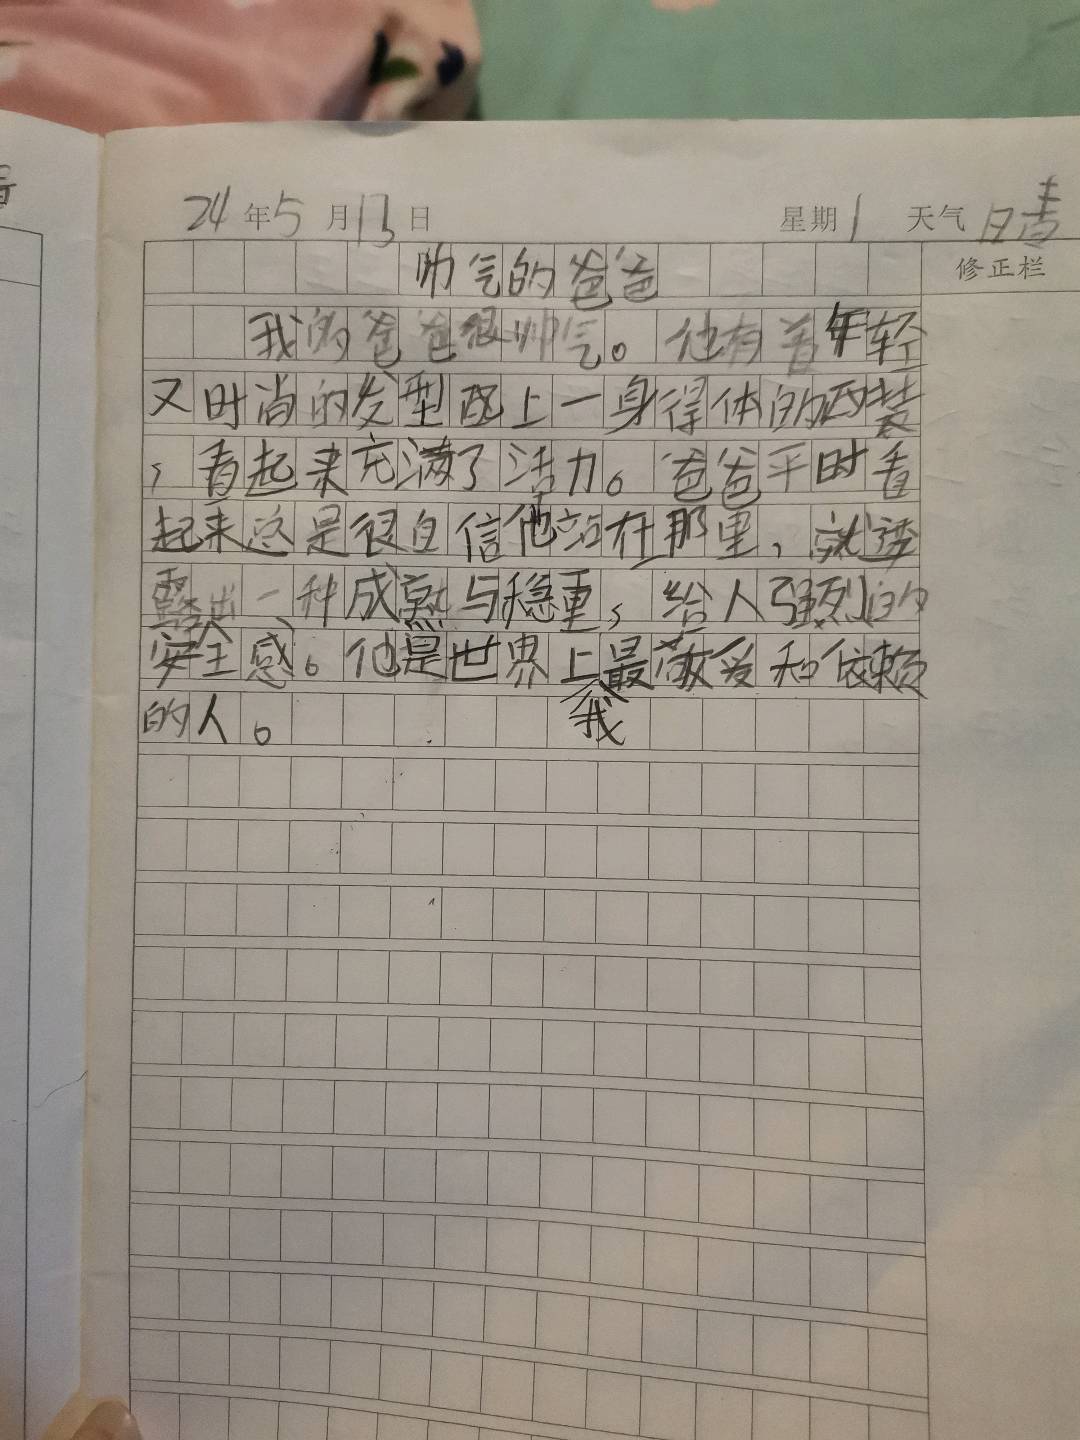 24年5月13日 星期1 天气 晴
修正栏
帅气的爸爸
我的爸爸很帅气。他有着年轻
又时尚的发型配上一身得体的西装
，看起来充满了活力。爸爸平时看
起来总是很自信他站在那里，就透
露出一种成熟与稳重，给人强烈的
安全感。他是世界上我最敬爱和依赖
的人。